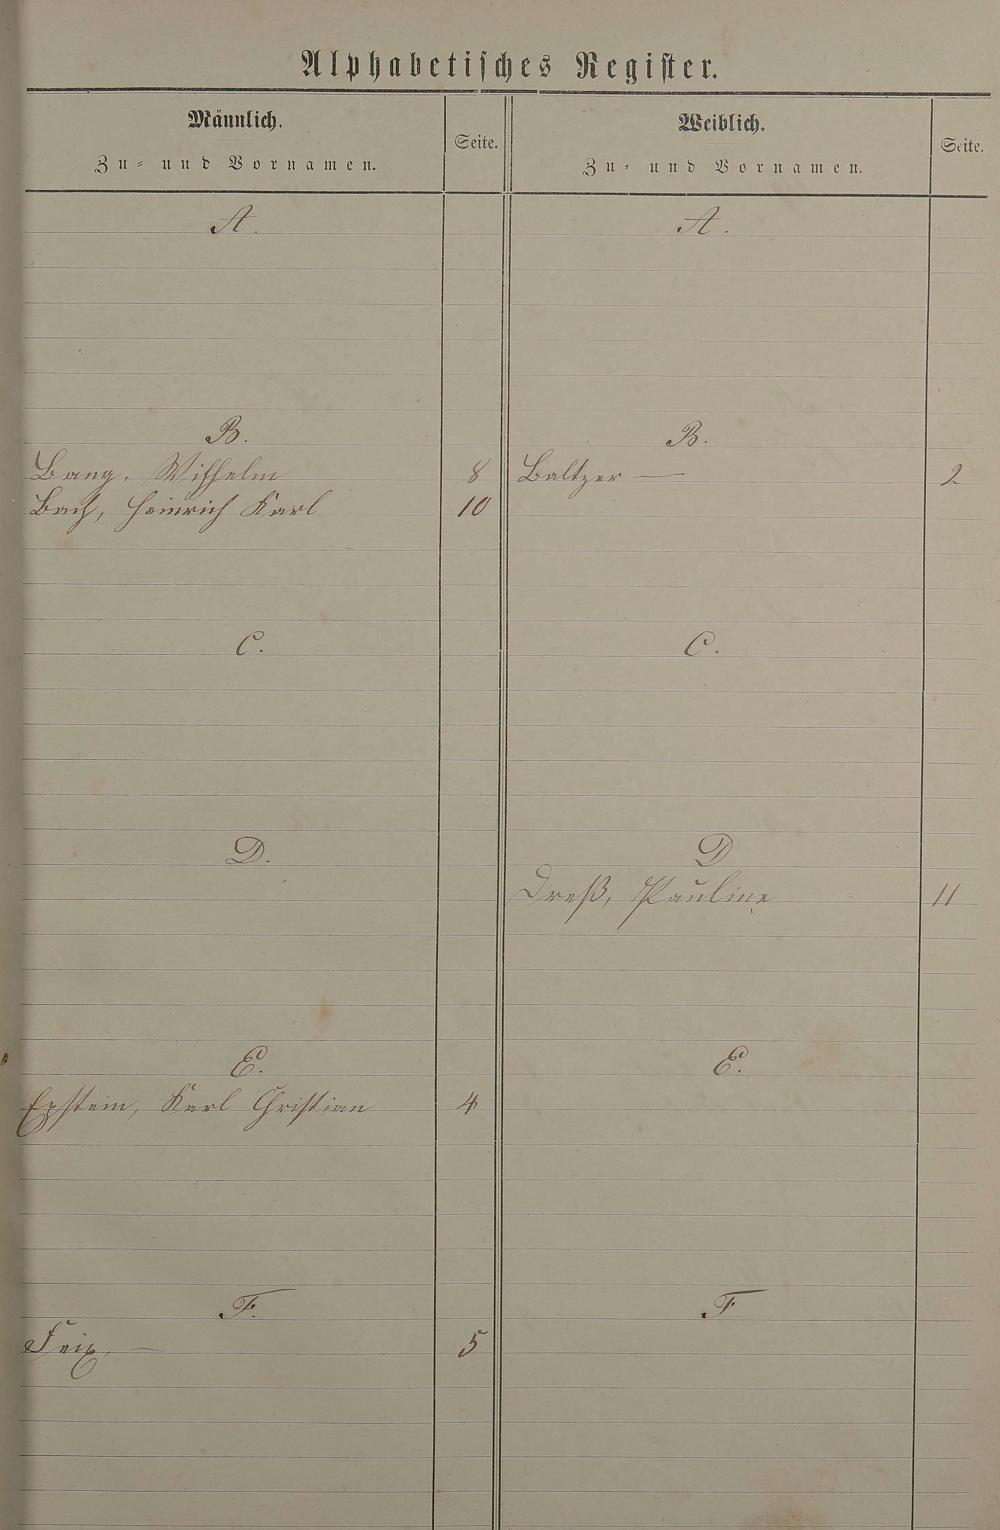 Alphabetisches Register.
Männlich.
Zu- und Vornamen.
Seite.
Weiblich.
Zu- und Vornamen.
Seite.
A. A.
B. B.
Bang, Wilhelm 8 Baltzer — 2
Bach, Heinrich Karl 10
C. C.
D. D
Dreß, Pauline 11
E. E.
Epstein, Karl Christian 4
F. F.
Feix, — 5